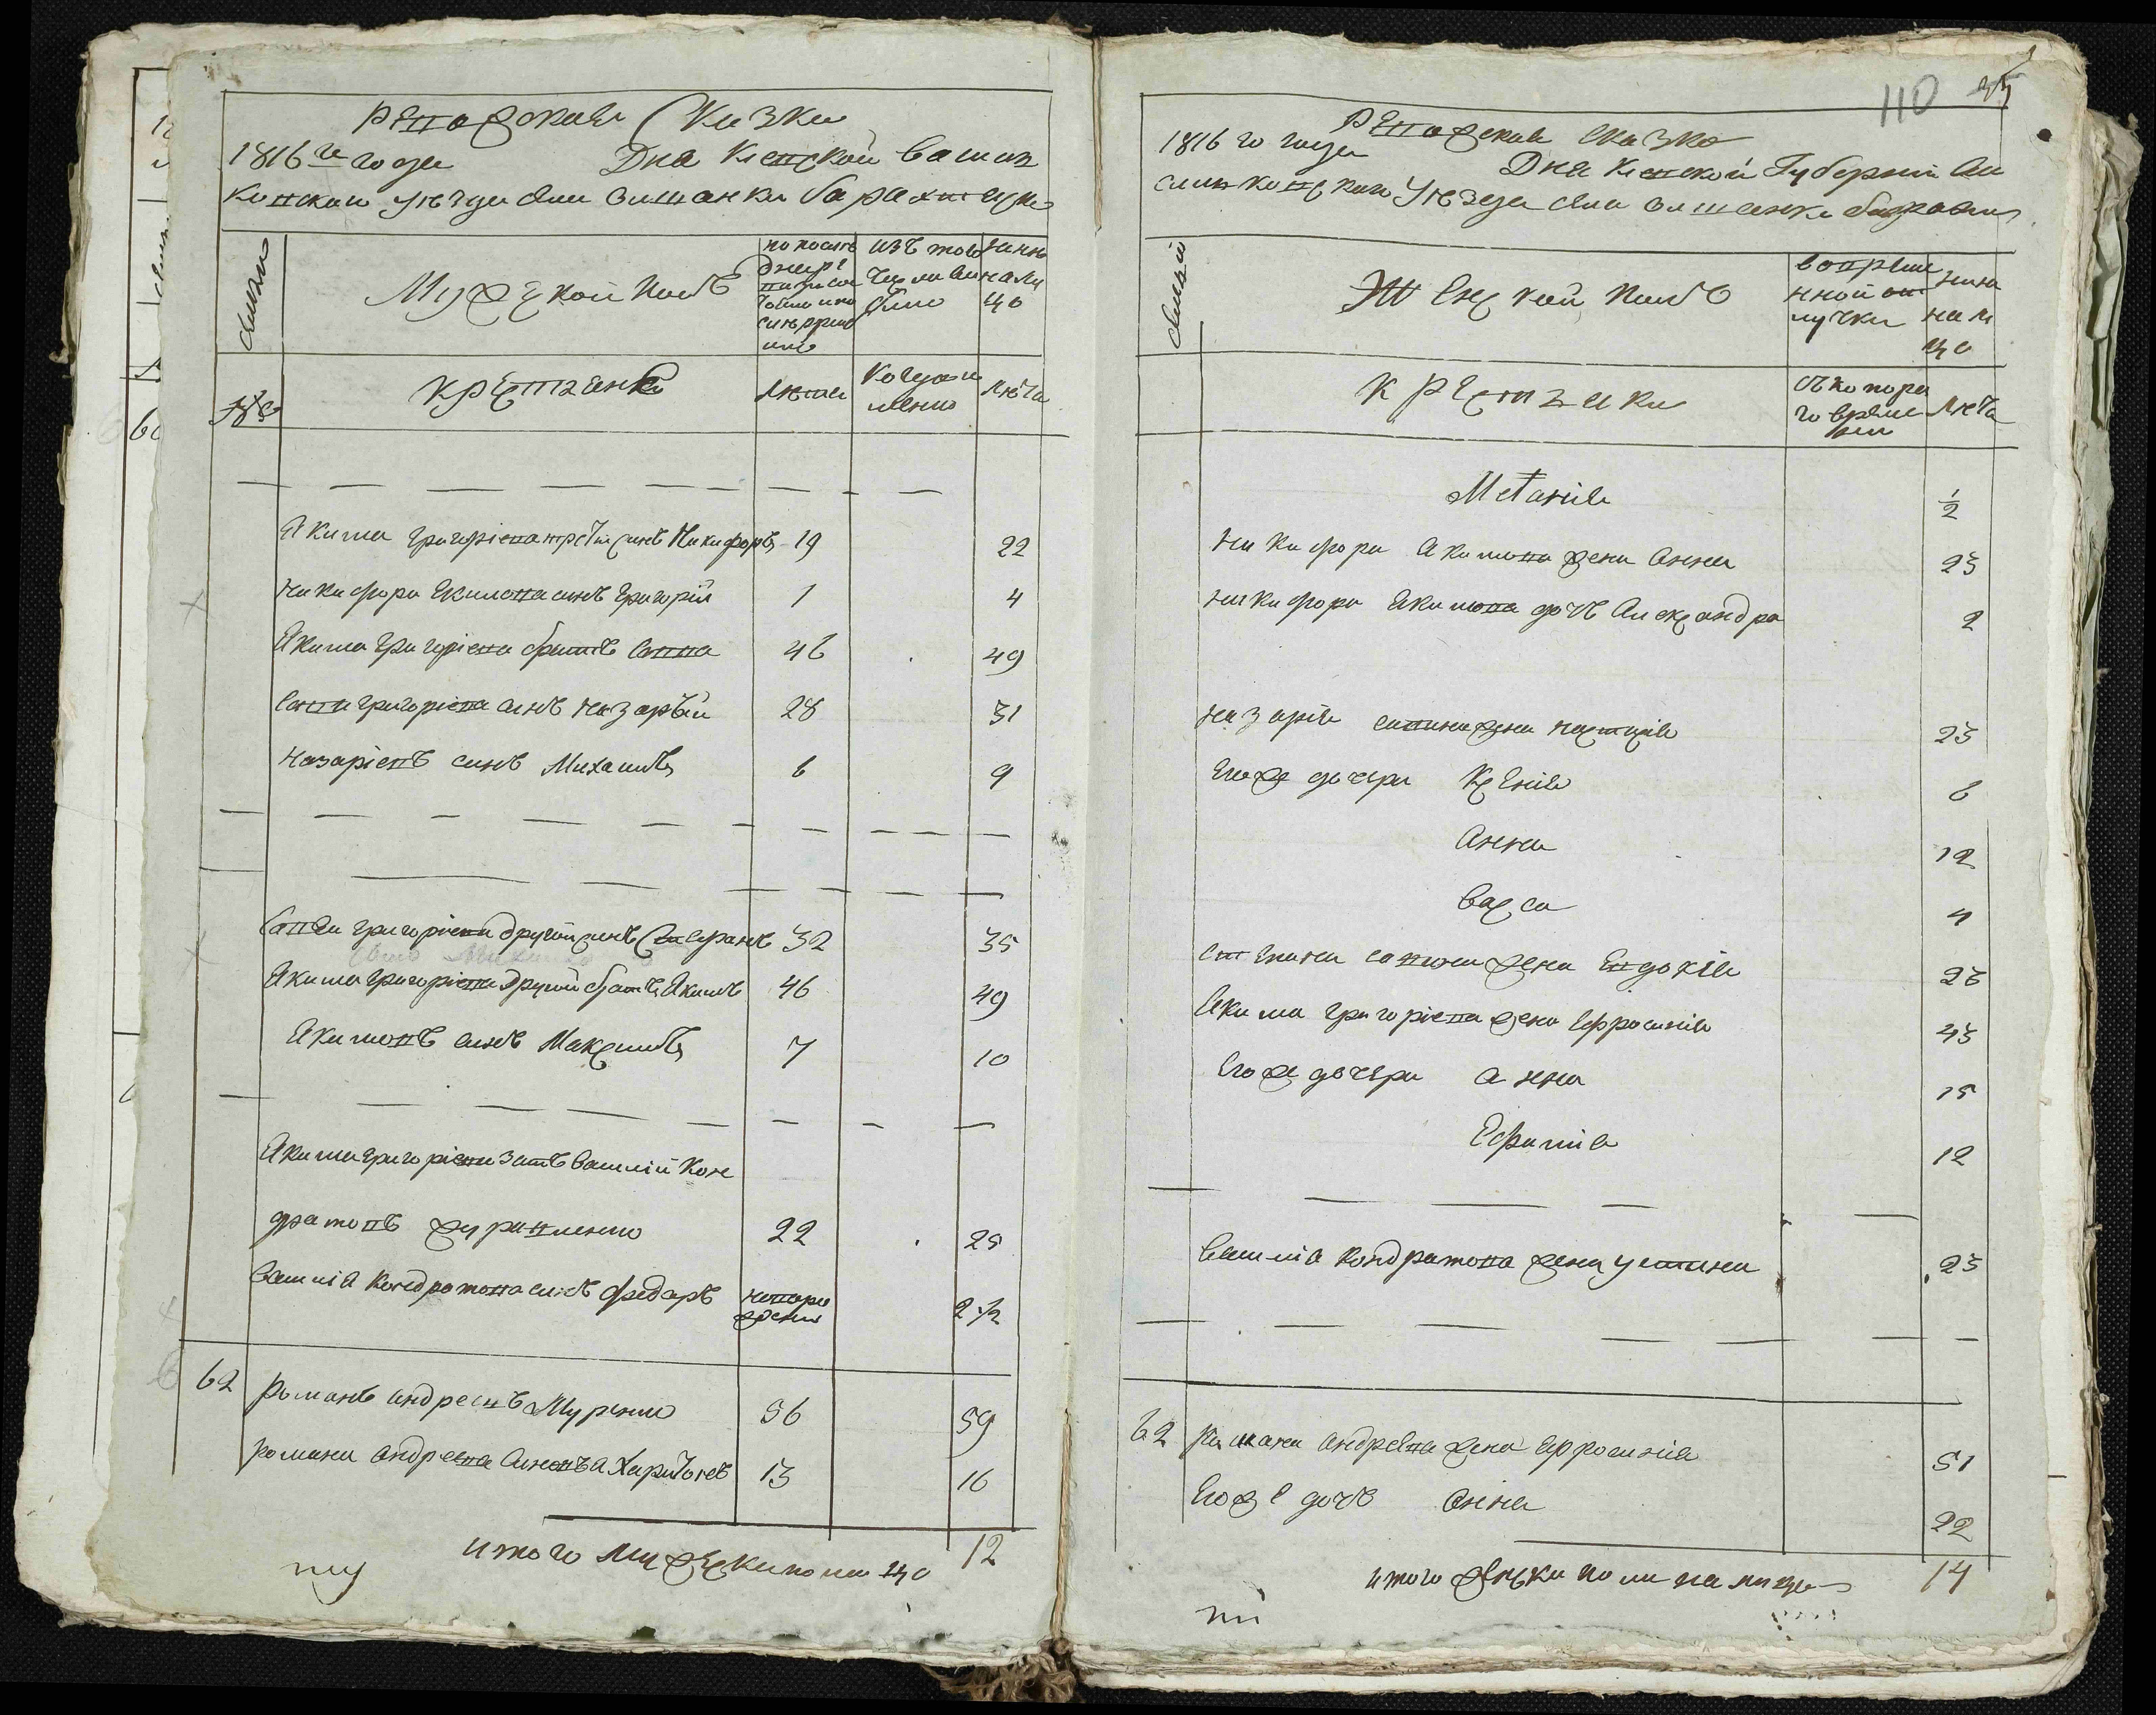 Ревожская Сказка
1816го года Дня Киевской Васил
ковского уезда села Ольшанки
семьи
Мужеской полъ
по последней ревизии состояло
изъ того числа выбыло
ныне на лицо
№
крестяне
лета
когда именно
лета
Якима Григориева третий синъ Никифоръ 19 22
Никифора Якимова синъ Григорий 1 4
Якима Григориева братъ Савва 46 49
Саввы Григориева синъ Назарий 28 31
Назариевъ синъ Михаилъ 6 9
Саввы Григориева другой синъ Степанъ 32 35
Якима Григориева другий братъ Якимъ 46 49
Якимовъ синъ Максимъ 7 10
Якима Григориева зать Василий Кон
дратовъ Журавленко 22 25
Василия Кондратова синъ Федоръ новорожденъ 2 1/2
62 Романъ Андреевъ Муренко 56 59
Романа Андреева синъ Харитонъ 13 16
итого мужеска пола на лицо 12
110
Ревожская сказка
1816 го года Дня Киевской Губернии Ва
силковского Уезда села Ольшанки
семьи
Женской полъ
во временной отлучке
ныне на лицо
крестянки
съ которого времени
лета
Меланія 1/2
Никифора Якимова жена Анна 23
Никифора Якимова дочь Александра 2
Назарія Савина жена Настасія 23
Его же дочери Ксенія 6
Анна 12
Васса 4
Степана Савина жена Евдокія 28
Якима Григоріева жена Ефросинія 43
Его же дочери Анна 15
Ефимія 12
Василія Кондратова жена Устина 23
62 Романа Андреева жена Ефросинія 51
Его же дочь Анна 22
итого женска пола на лицо 14